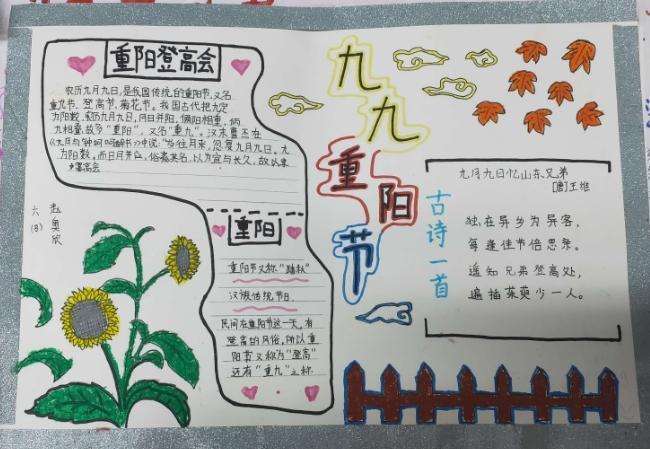 重阳登高会
农历九月九日,是我国传统的重阳节,又名
重九节、登高节、菊花节。我国古代把九定
为阳数,农历九月九日,月日并阳,俩阳相重,俩
九相叠,故多“重阳”,又名“重九”。汉末曹丕在
中说:“岁往月来,忽复九月九日。九
为阳数,而日月并应,俗嘉其名,以为宜与长久,故以享
宴高会
六
(8)
赵奥欣
重阳
重阳节又称“踏秋”
汉族传统节日。
民间在重阳节这一天,有
登高的风俗,所以重
阳节又称为“登高”
还有“重九”之称
九九重阳节
古诗一首
九月九日忆山东兄弟
[唐]王维
独在异乡为异客,
每逢佳节倍思亲。
遥知兄弟登高处,
遍插茱萸少一人。